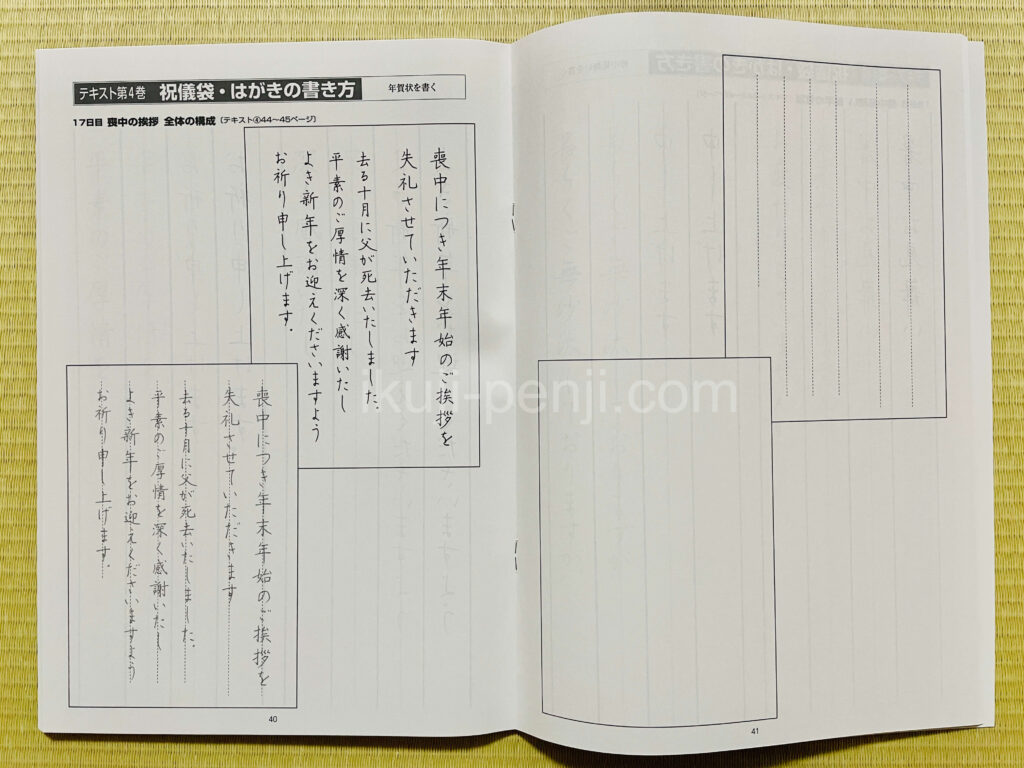 テキスト第4巻 祝儀袋・はがきの書き方 年賀状を書く
17日目 喪中の挨拶 全体の構成 (テキスト④44〜45ページ)
喪中につき年末年始のご挨拶を
失礼させていただきます
去る十月に父が死去いたしました。
平素のご厚情を深く感謝いたし
よき新年をお迎えくださいますよう
お祈り申し上げます。
喪中につき年末年始のご挨拶を
失礼させていただきます
去る十月に父が死去いたしました。
平素のご厚情を深く感謝いたし
よき新年をお迎えくださいますよう
お祈り申し上げます。
40
41
ikuji-penji.com